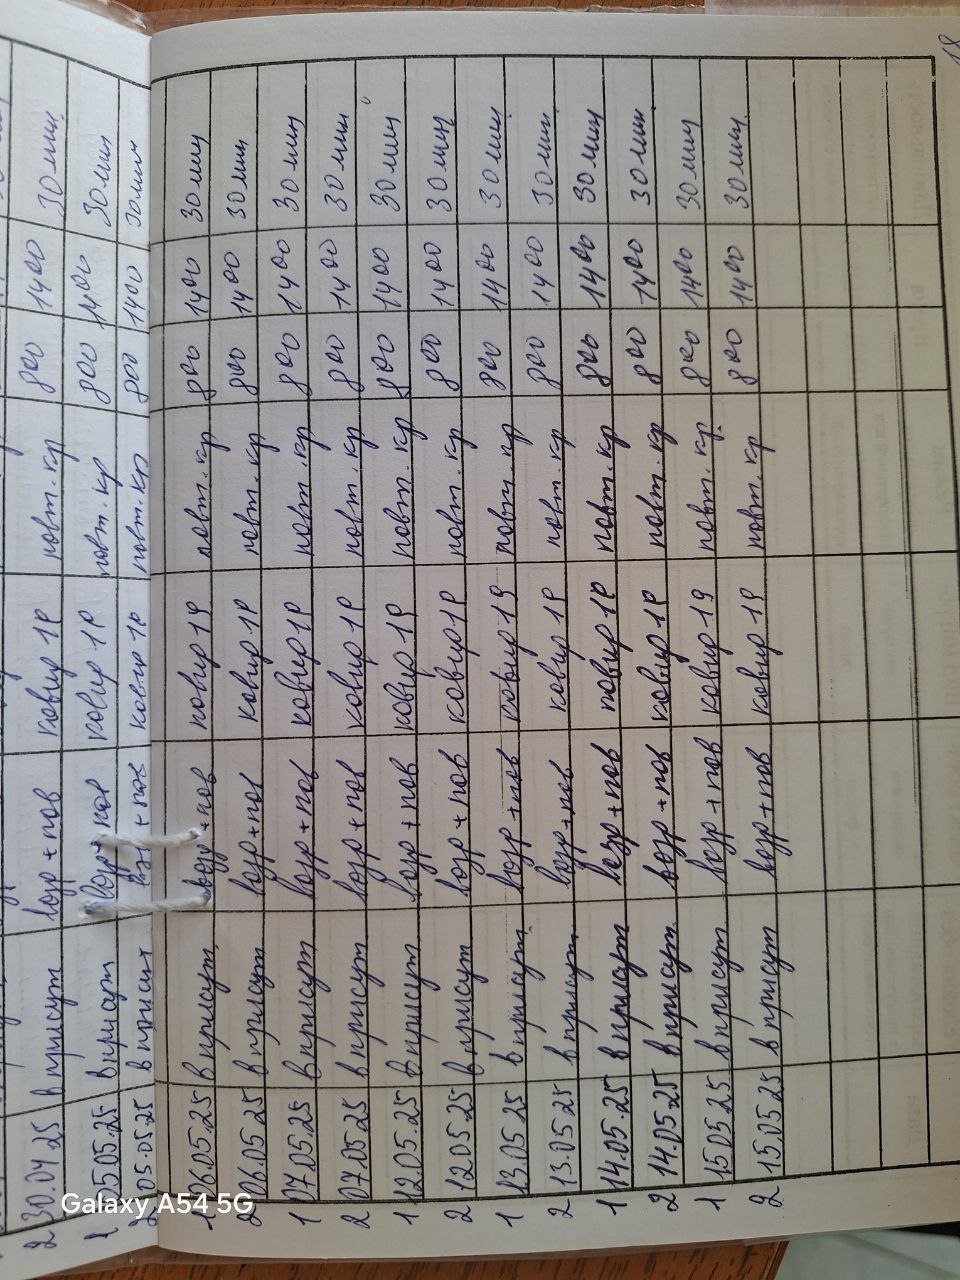 2 30.04.25 в присут возр + пов ковир 1Р повт. кр 800 1400 30 мин
1 05.05.25 в присут возр + пов ковир 1Р повт. кр 800 1400 30 мин
2 05.05.25 в присут возр + пов ковир 1Р повт. кр 800 1400 30 мин
1 06.05.25 в присут возр + пов ковир 19 повт. кр 800 1400 30 мин
2 06.05.25 в присут возр + пов ковир 1Р повт. кр 800 1400 30 мин
1 07.05.25 в присут возр + пов ковир 1Р повт. кр 800 1400 30 мин
2 07.05.25 в присут возр + пов ковир 1Р повт. кр 800 1400 30 мин
1 12.05.25 в присут возр + пов ковир 19 повт. кр 800 1400 30 мин
2 12.05.25 в присут возр + пов ковир 1Р повт. кр 800 1400 30 мин
1 13.05.25 в присут возр + пов ковир 19 повт. кр 800 1400 30 мин
2 13.05.25 в присут возр + пов ковир 1Р повт. кр 800 1400 30 мин
1 14.05.25 в присут возр + пов ковир 1Р повт. кр 800 1400 30 мин
2 14.05.25 в присут возр + пов ковир 1Р повт. кр 800 1400 30 мин
1 15.05.25 в присут возр + пов ковир 19 повт. кр 800 1400 30 мин
2 15.05.25 в присут возр + пов ковир 19 повт. кр 800 1400 30 мин
Galaxy A54 5G